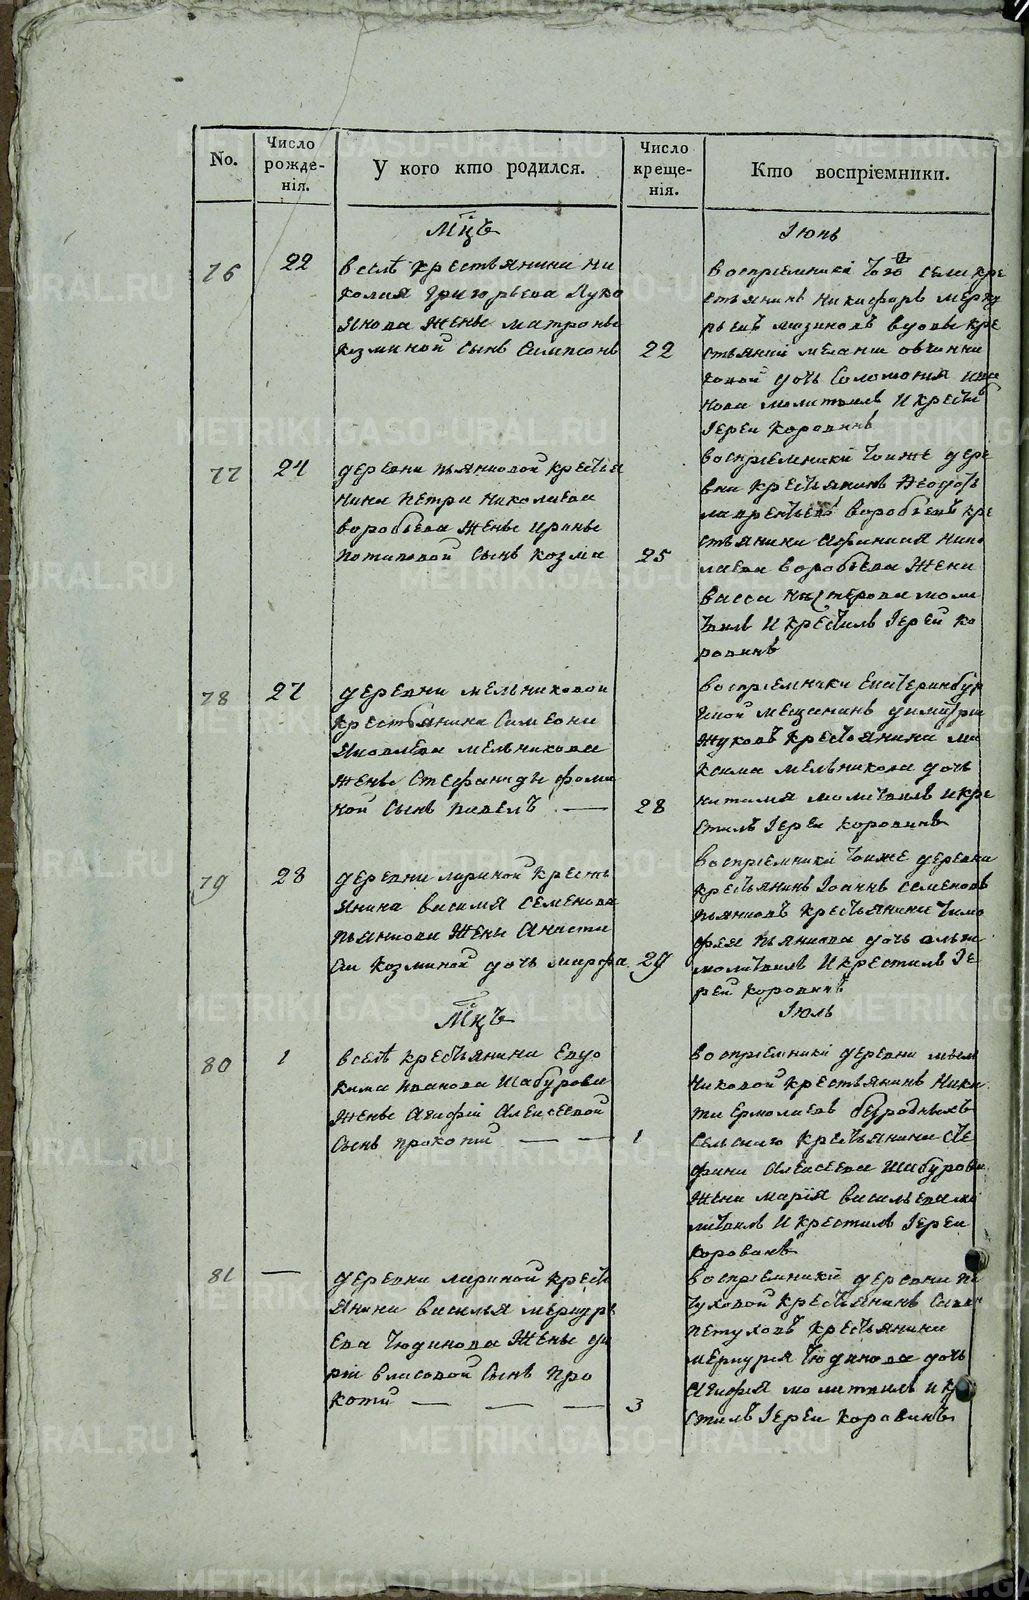 No.
Число
рожде-
нія.
У кого кто родился.
Число
креще-
нія.
Кто воспріемники.
Мцъ
Іюнь
76
22
в селѣ крестьянина Ни
колая Григорьева Луко
янова жены матроны
козминой сынъ Симпсонъ
22
воспріемники того села кре
стьянинъ Никифоръ мерку
рьевъ мизиновъ вдовы кре
стьянки меланіи овчинни
ковой дочь Соломонія
молитвилъ И крестилъ
Іерей коровинъ
77
24
деревни пьянковой крестья
нина петра николаева
воробьева жены ирины
потаповой сынъ козма
25
воспріемники тоиже дере
вни крестьянинъ Ѳеодотъ
лаврентьевъ воробьевъ кре
стьянина Афанасія Нико
лаева воробьева жена
васса нестерова моли
твилъ И крестилъ Іерей ко
ровинъ
78
27
деревни мельниковой
крестьянина Симеона
Яковлева мельникова
жены Стефаниды фоми
ной сынъ павелъ —
28
воспріемники Екатеринбур
гской мещанинъ димитрій
жуковъ крестьянина ма
ксима мельникова дочь
наталія молитвилъ и кре
стилъ Іереи коровинъ
79
28
деревни лариной кресть
янина василія семенова
пьянкова жены Анаста
сіи козминой дочь марфа
29
воспріемники тоиже деревни
крестьянинъ Іоаннъ семеновъ
пьянковъ крестьянина тимо
фея пьянкова дочь
молитвилъ И крестилъ Іе
рей коровинъ
Мцъ
Іюль
80
1
в селѣ крестьянина Евдо
кима иванова Шабурова
жены Агафіи Алексеевой
Сынъ прокопій — —
1
воспріемники деревни мель
никовой крестьянинъ Ники
та Ермолаевъ безродныхъ
сельскаго крестьянина Сте
фана Алексеева Шабурова
жена марія васильева мо
литвилъ И крестилъ Іереи
коровинъ
81
—
деревни лариной кресть
янина василья меркурь
ева Чюдинова жены да
ріи власовой Сынъ про
копій — — —
3
воспріемники деревни пе
туховой крестьянинъ Савва
петуховъ крестьянина
меркурія Чюдинова дочь
Агафія молитвилъ и кре
стилъ Іереи коровинъ